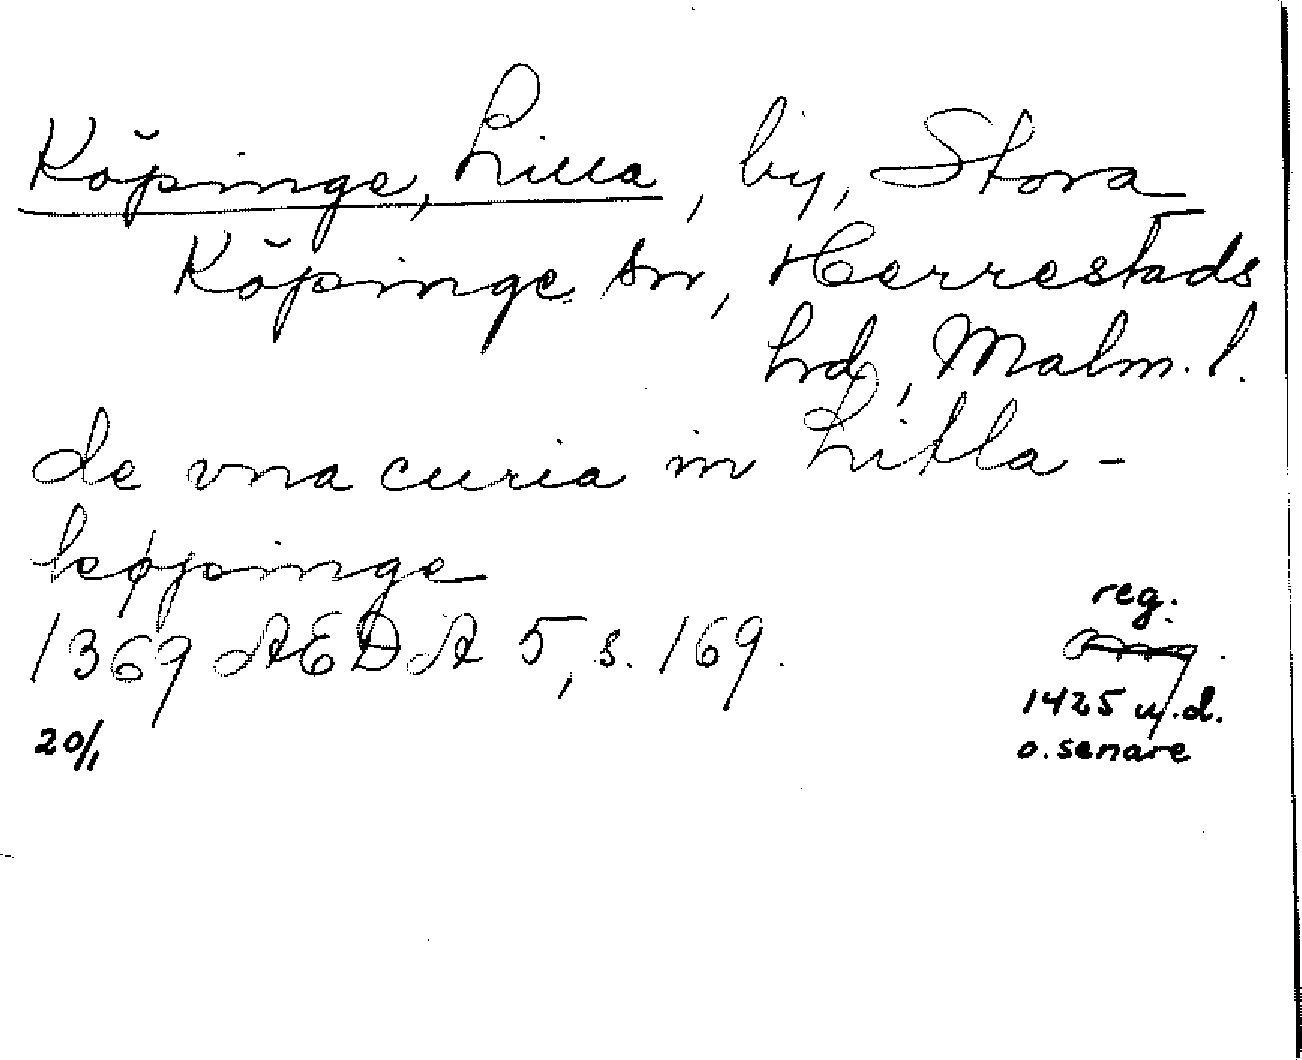 Köpinge, Lilla, by, Stora
Köpinge sn, Herrestads
hd, Malm. l.
de vna curia in Litla-
køpinge
1369 AEDA 5, s. 169.
20/1
reg.
1425 u.d.
o. senare